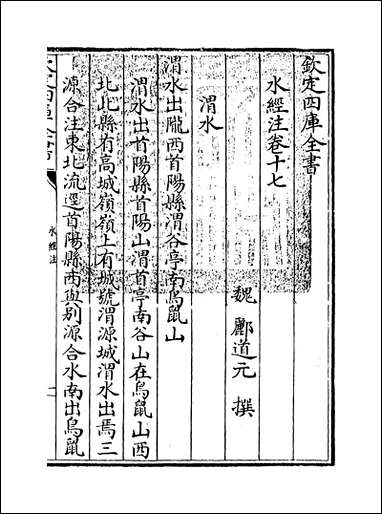 欽定四庫全書
水經注卷十七
魏 酈道元 撰
渭水
渭水出隴西首陽縣渭谷亭南鳥鼠山
渭水出首陽縣首陽山渭首亭南谷山在鳥鼠山西
北此縣有高城嶺嶺上有城號渭源城渭水出焉三
源合注東北流逕首陽縣西與别源合水南出鳥鼠
水經注